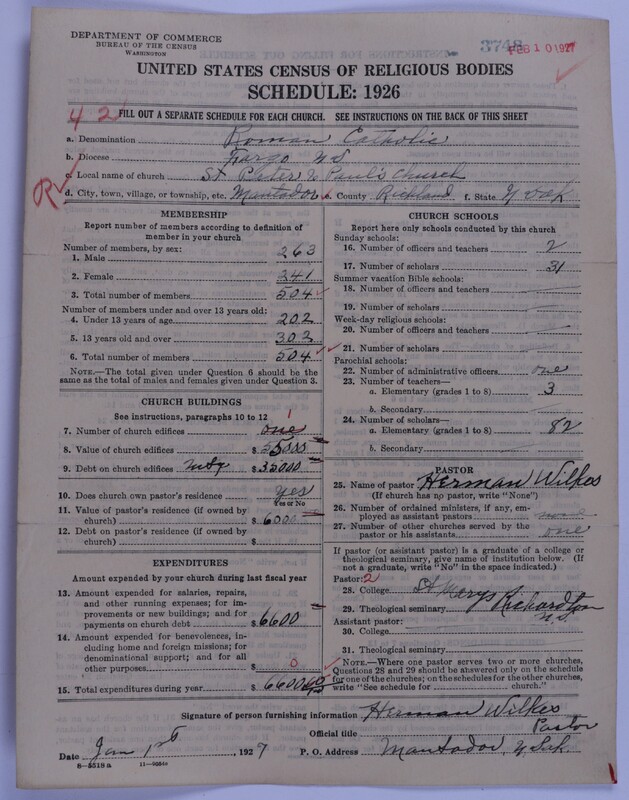 DEPARTMENT OF COMMERCE
BUREAU OF THE CENSUS
WASHINGTON
3748
FEB 10 1927
UNITED STATES CENSUS OF RELIGIOUS BODIES
SCHEDULE: 1926
4 2
FILL OUT A SEPARATE SCHEDULE FOR EACH CHURCH. SEE INSTRUCTIONS ON THE BACK OF THIS SHEET
a. Denomination Roman Catholic
b. Diocese Fargo ND
c. Local name of church St Peter & Paul's Church
R
d. City, town, village, or township, etc. Mantador e. County Richland f. State N Dak
MEMBERSHIP
Report number of members according to definition of
member in your church
Number of members, by sex:
1. Male 263
2. Female 241
3. Total number of members 504
Number of members under and over 13 years old:
4. Under 13 years of age 202
5. 13 years old and over 302
6. Total number of members 504
NOTE.—The total given under Question 6 should be
same as the total of males and females given under Question 3.
CHURCH BUILDINGS
See instructions, paragraphs 10 to 12
1
7. Number of church edifices one
8. Value of church edifices $
9. Debt on church edifices $
10. Does church own pastor's residence yes
Yes or No
11. Value of pastor's residence (if owned by
church) $ 6000
12. Debt on pastor's residence (if owned by
church) $
EXPENDITURES
Amount expended by your church during last fiscal year
13. Amount expended for salaries, repairs,
and other running expenses; for im-
provements or new buildings; and for
payments on church debt $ 6600
14. Amount expended for benevolences, in-
cluding home and foreign missions; for
denominational support; and for all
other purposes $ 0
15. Total expenditures during year $ 6600
CHURCH SCHOOLS
Report here only schools conducted by this church
Sunday schools:
16. Number of officers and teachers 2
17. Number of scholars 31
Summer vacation Bible schools:
18. Number of officers and teachers
19. Number of scholars
Week-day religious schools:
20. Number of officers and teachers
21. Number of scholars
Parochial schools:
22. Number of administrative officers one
23. Number of teachers—
a. Elementary (grades 1 to 8) 3
b. Secondary
24. Number of scholars—
a. Elementary (grades 1 to 8) 82
b. Secondary
PASTOR
25. Name of pastor Herman Wilkes
(If church has no pastor, write "None")
26. Number of ordained ministers, if any, em-
ployed as assistant pastors none
27. Number of other churches served by the
pastor or his assistants one
If pastor (or assistant pastor) is a graduate of a college or
theological seminary, give name of institution below. (If
not a graduate, write "No" in the space indicated.)
Pastor: 2
28. College St Marys Richardton
29. Theological seminary N.D.
Assistant pastor:
30. College
31. Theological seminary
NOTE.—Where one pastor serves two or more churches,
Questions 28 and 29 should be answered only on the schedule
for one of the churches; on the schedules for the other churches,
write "See schedule for church."
Signature of person furnishing information Herman Wilkes
Official title Pastor
Date Jan 1st 1927 P. O. Address Mantador, N Dak.
8—5518a